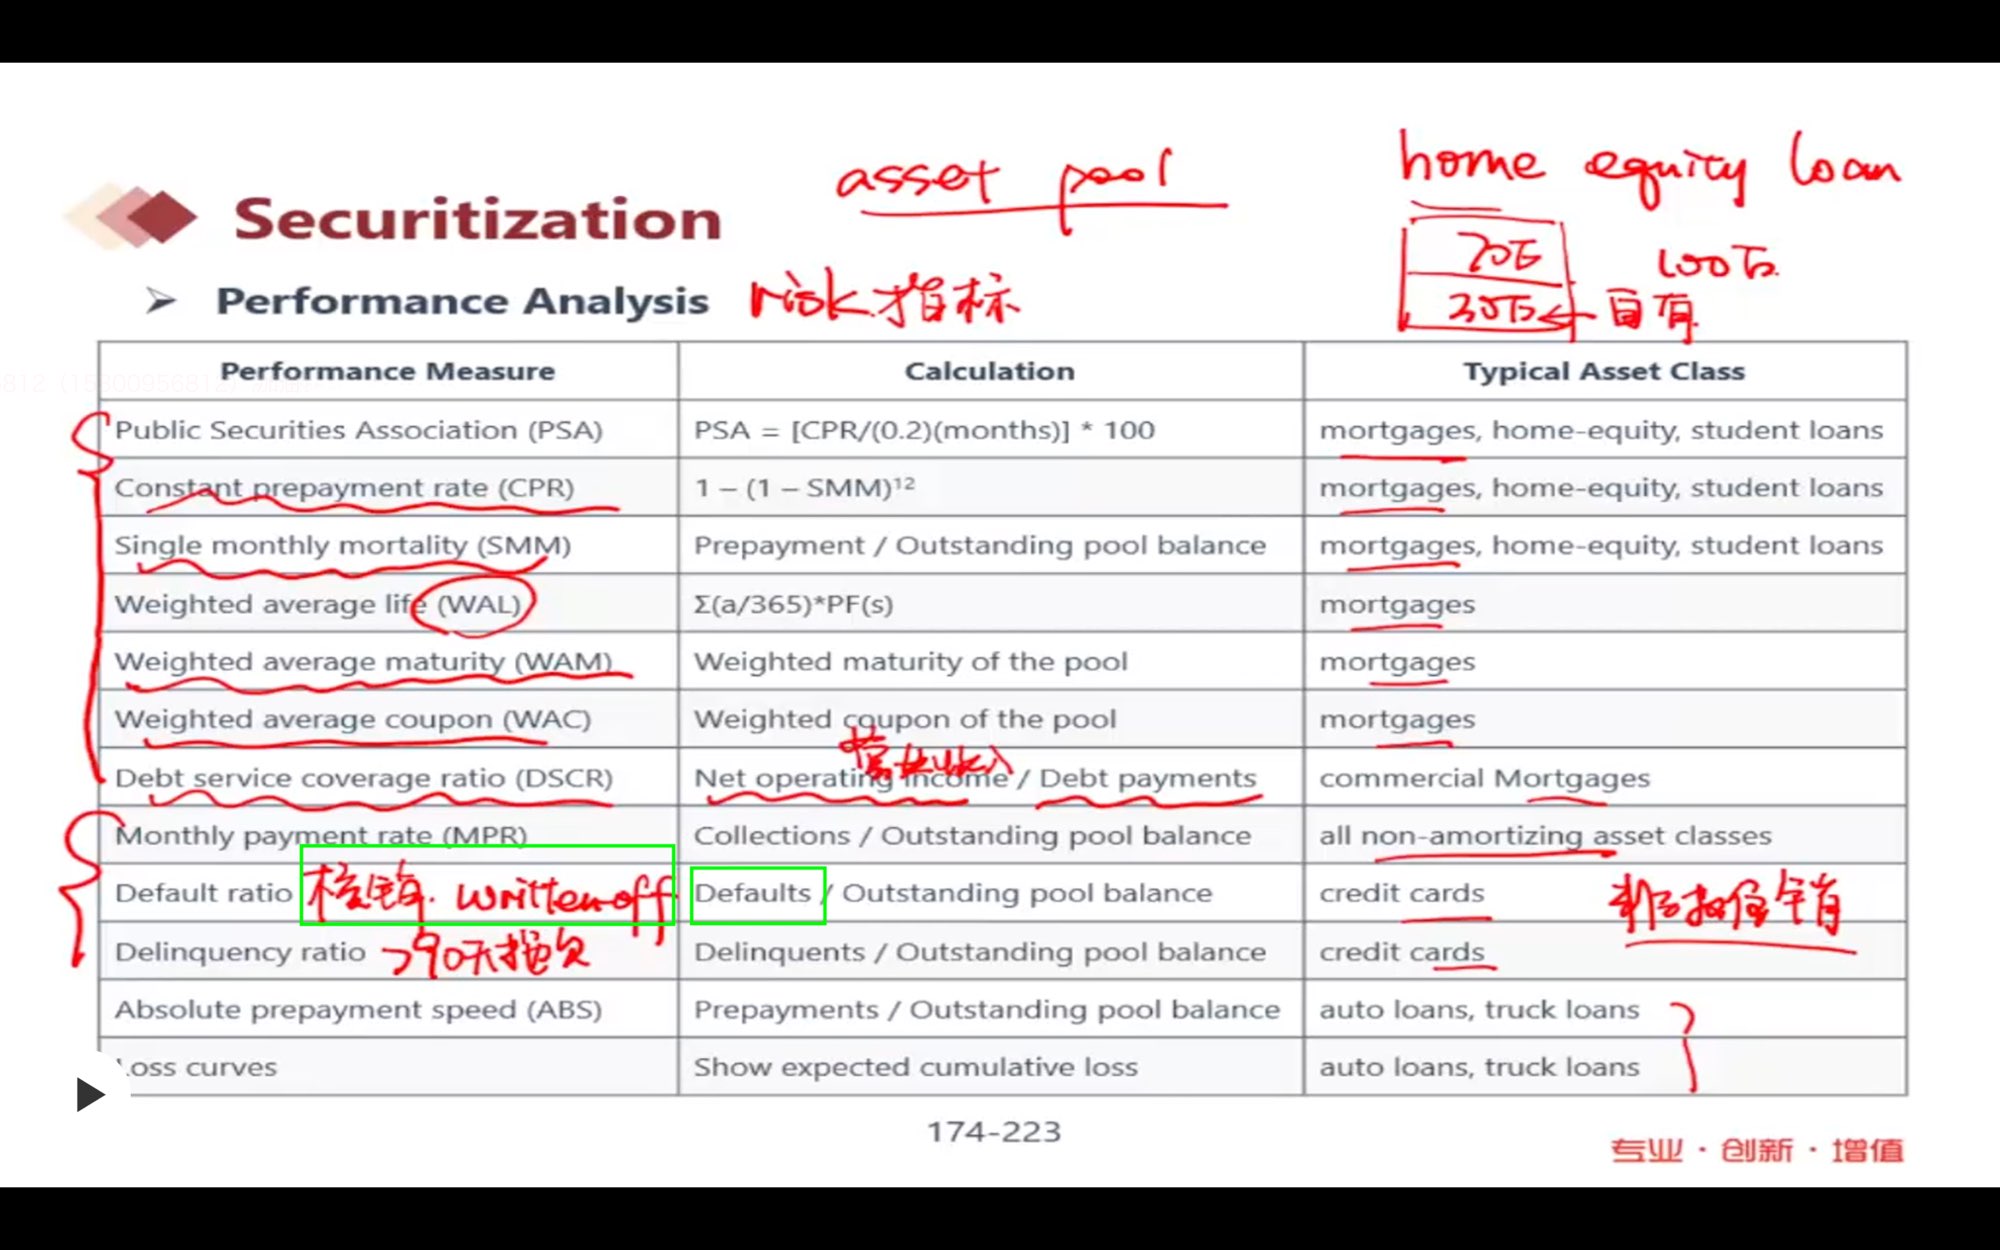 asset pool
home equity loan
Securitization
70万
100万
30万 ← 自有
➢ Performance Analysis risk 指标
Performance Measure Calculation Typical Asset Class
Public Securities Association (PSA) PSA = [CPR/(0.2)(months)] * 100 mortgages, home-equity, student loans
Constant prepayment rate (CPR) 1 – (1 – SMM)¹² mortgages, home-equity, student loans
Single monthly mortality (SMM) Prepayment / Outstanding pool balance mortgages, home-equity, student loans
Weighted average life (WAL) Σ(a/365)*PF(s) mortgages
Weighted average maturity (WAM) Weighted maturity of the pool mortgages
Weighted average coupon (WAC) Weighted coupon of the pool mortgages
营业收入
Debt service coverage ratio (DSCR) Net operating income / Debt payments commercial Mortgages
Monthly payment rate (MPR) Collections / Outstanding pool balance all non-amortizing asset classes
Default ratio 核销. written off Defaults / Outstanding pool balance credit cards
Delinquency ratio >90天拖欠 Delinquents / Outstanding pool balance credit cards
Absolute prepayment speed (ABS) Prepayments / Outstanding pool balance auto loans, truck loans
Loss curves Show expected cumulative loss auto loans, truck loans
174-223
专业·创新·增值